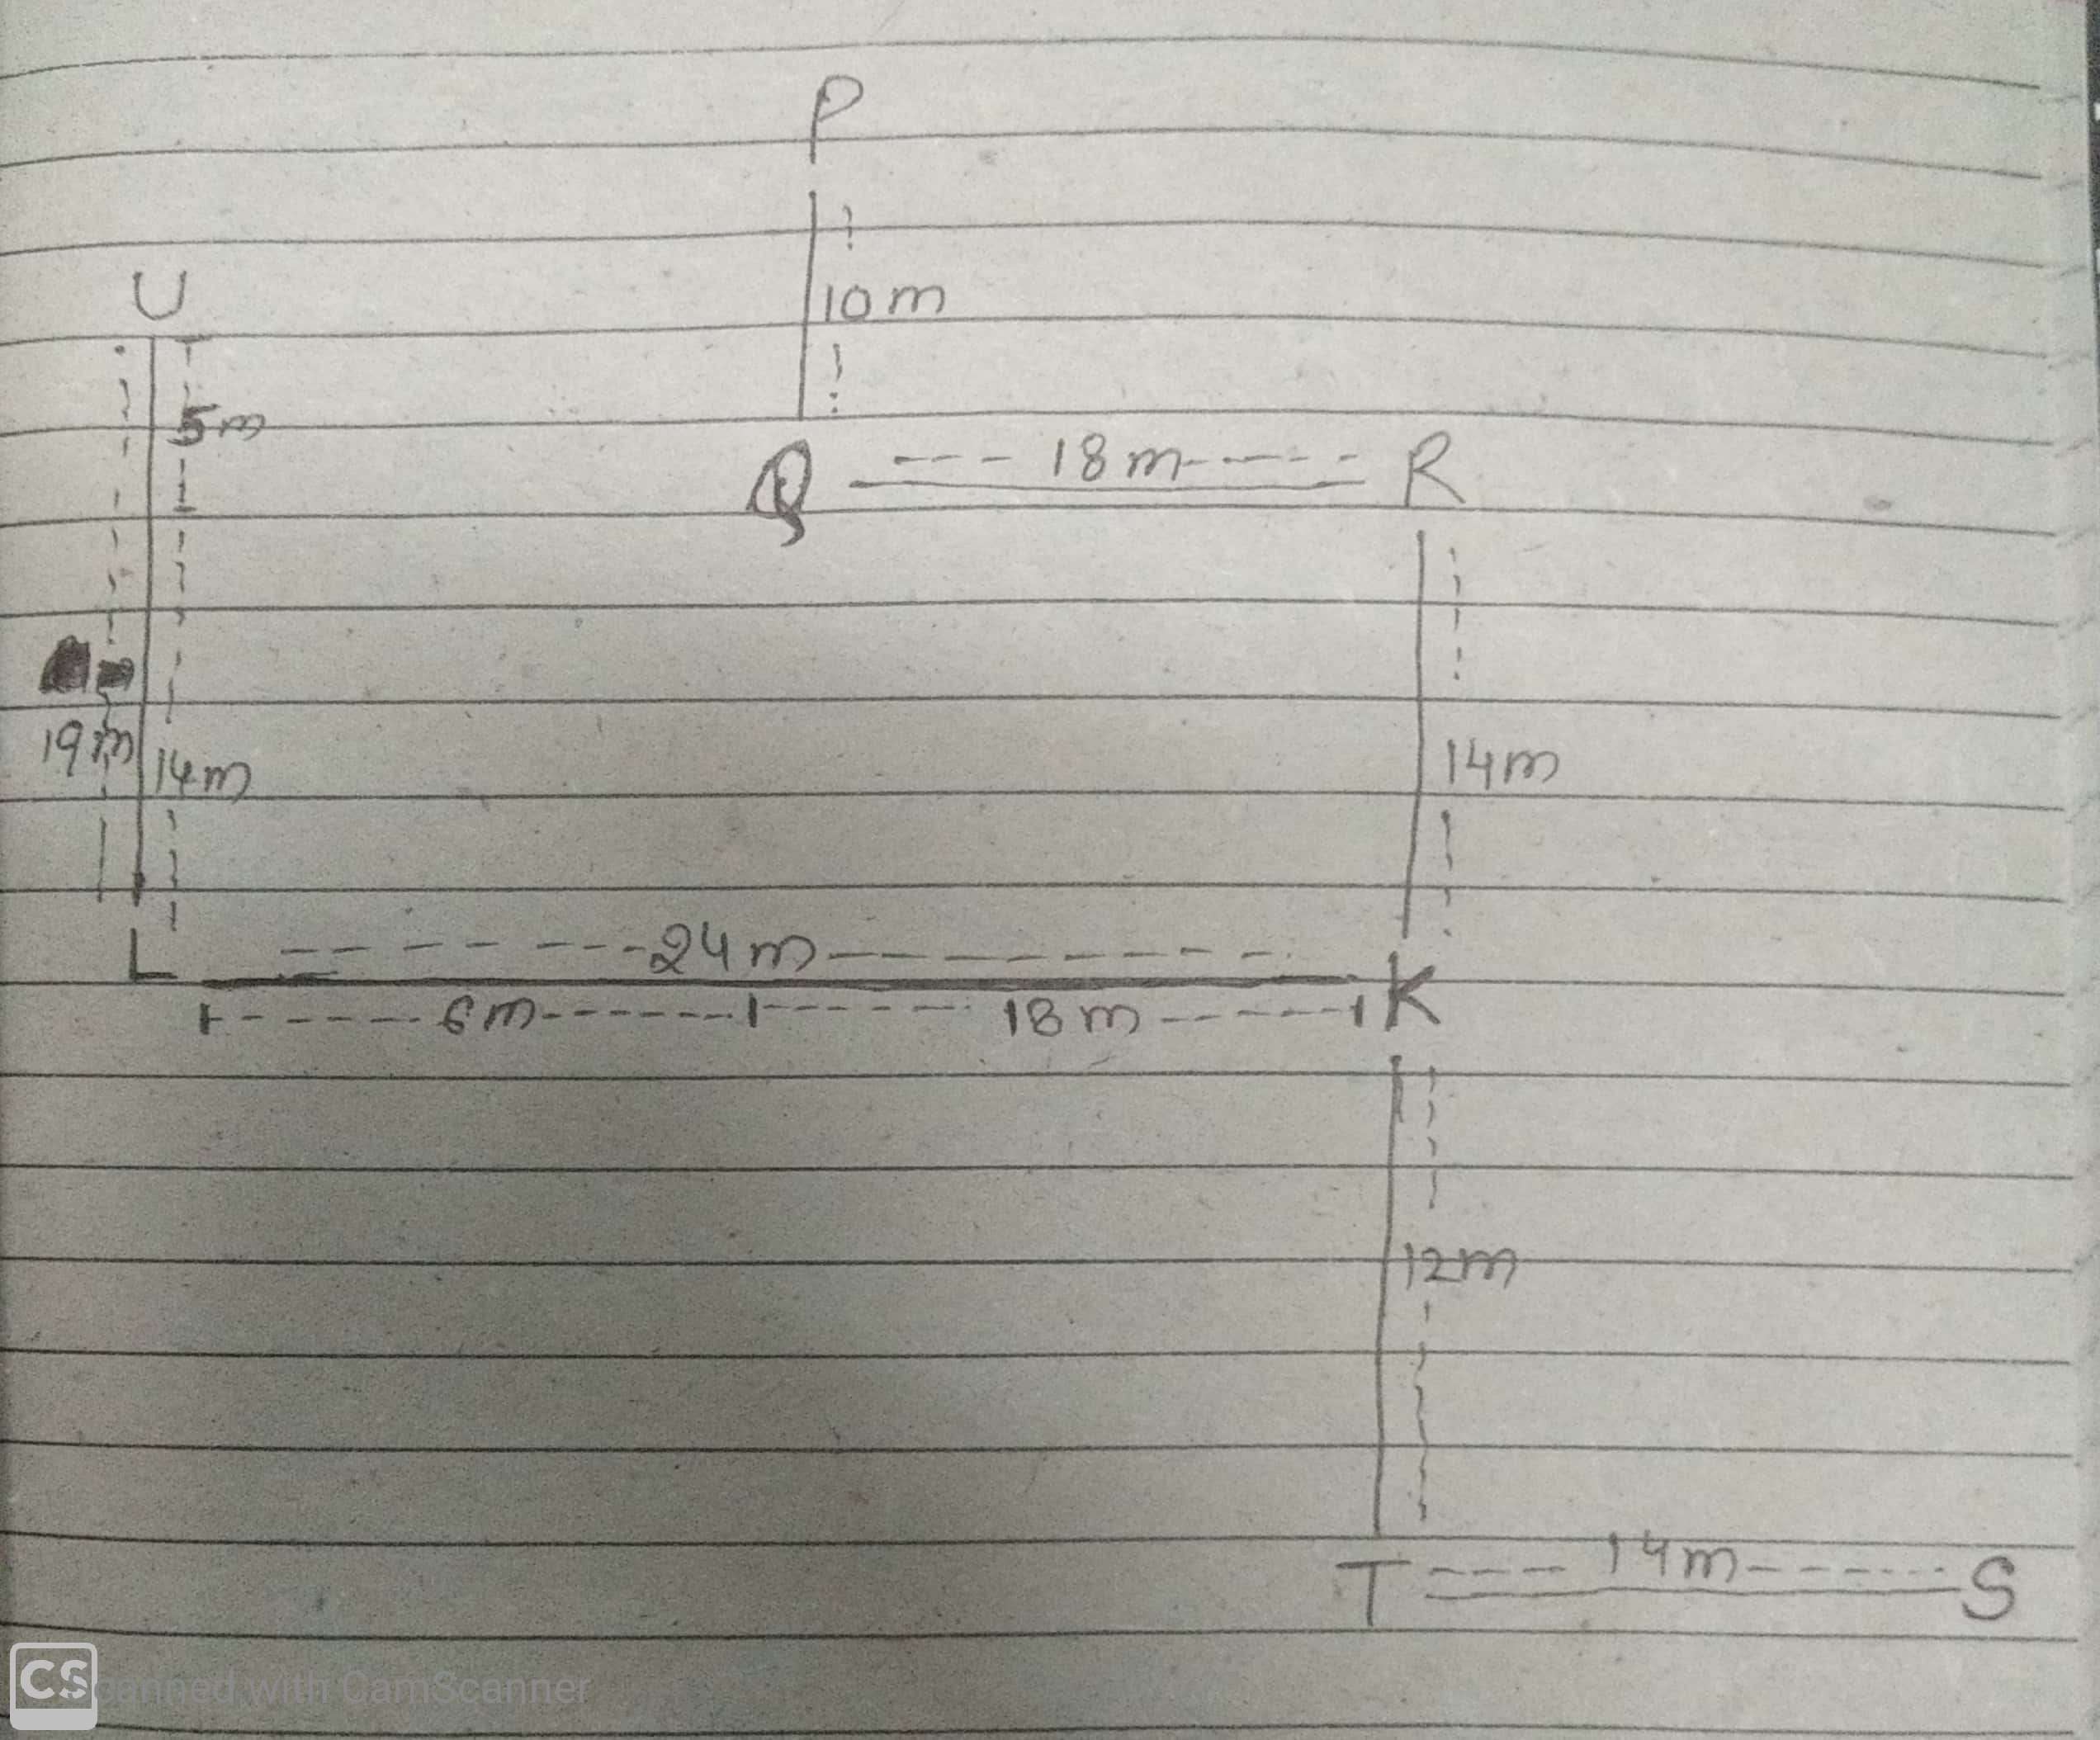 P
U
10m
5m
Q 18m R
19m 14m 14m
L 24m K
6m 18m
12m
T 14m S
CS
Scanned with CamScanner